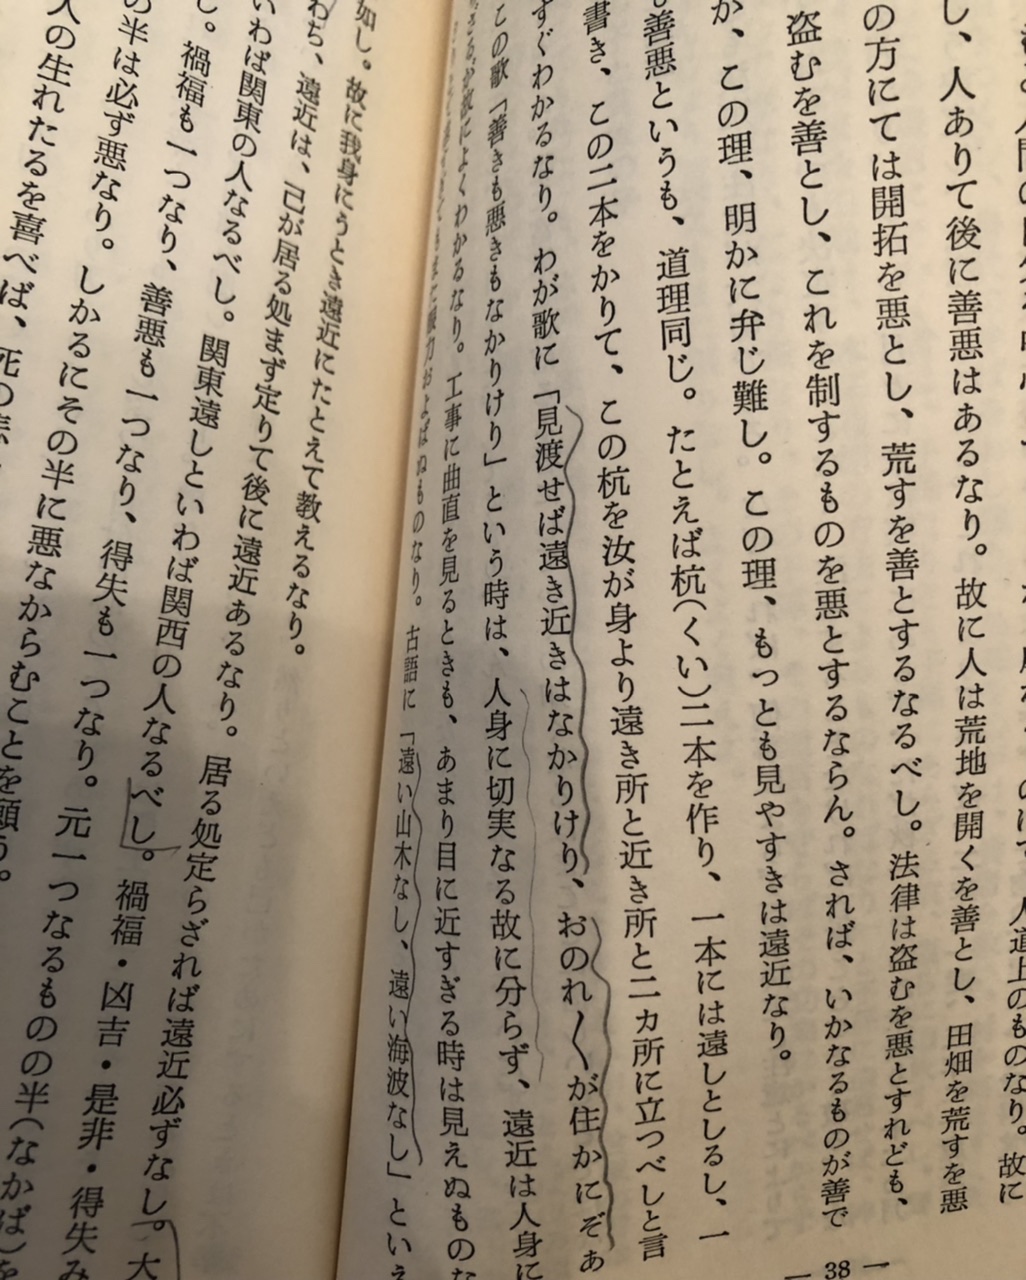 人道上のものなり。故に
し、人ありて後に善悪はあるなり。故に人は荒地を開くを善とし、田畑を荒すを悪
の方にては開拓を悪とし、荒すを善とするなるべし。法律は盗むを悪とすれども、
盗むを善とし、これを制するものを悪とするならん。されば、いかなるものが善で
か、この理、明かに弁じ難し。この理、もっとも見やすきは遠近なり。
善悪というも、道理同じ。たとえば杭(くい)二本を作り、一本には遠しとしるし、一
書き、この二本をかりて、この杭を汝が身より遠き所と近き所と二カ所に立つべしと言
すぐわかるなり。わが歌に「見渡せば遠き近きはなかりけり、おのれ〱が住かにぞあ
この歌「善きも悪きもなかりけり」という時は、人身に切実なる故に分らず、遠近は人身に
によくわかるなり。工事に曲直を見るときも、あまり目に近すぎる時は見えぬものな
眼力およばぬものなり。古語に「遠い山木なし、遠い海波なし」といえ
如し。故に我身にうとき遠近にたとえて教えるなり。
わち、遠近は、己が居る処まず定りて後に遠近あるなり。居る処定らざれば遠近必ずなし。大
いわば関東の人なるべし。関東遠しといわば関西の人なるべし。禍福・凶吉・是非・得失み
し。禍福も一つなり、善悪も一つなり、得失も一つなり。元一つなるものの半(なかば)を
の半は必ず悪なり。しかるにその半に悪なからむことを願う。
人の生れたるを喜べば、死の
— 38 —